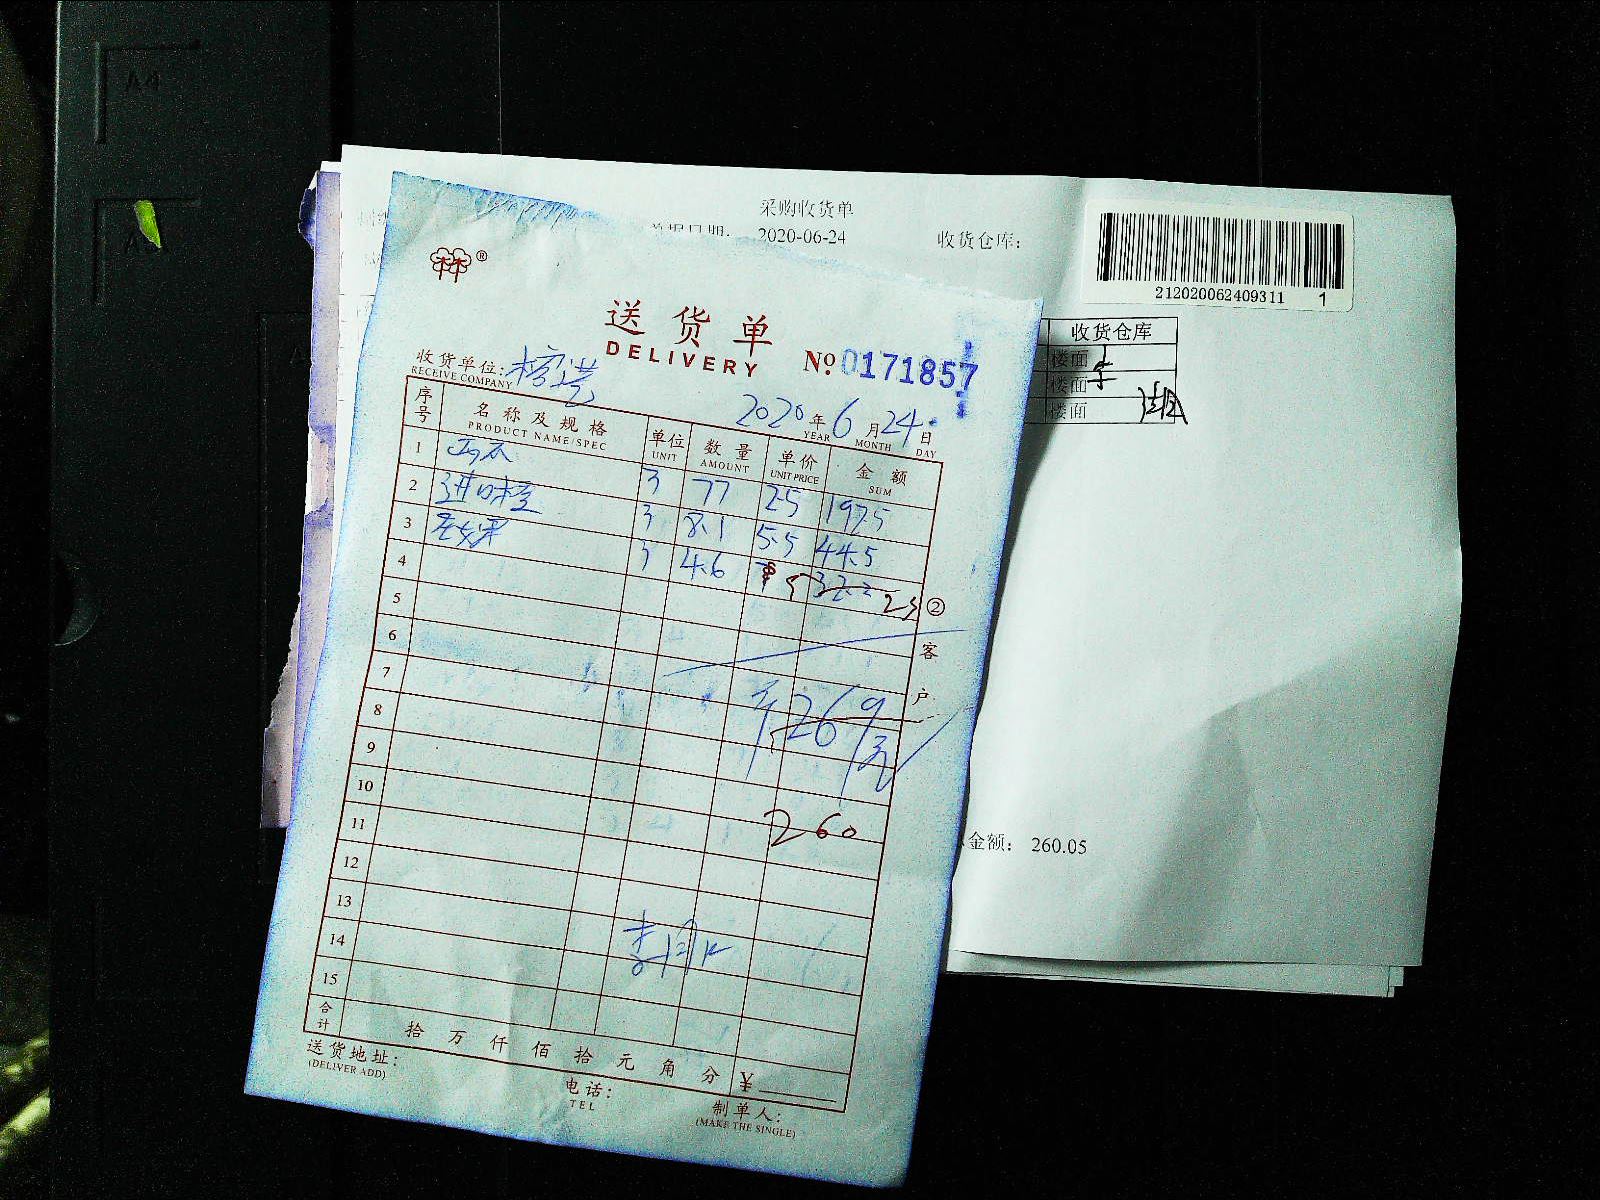 采购收货单
单据日期： 2020-06-24 收货仓库：
212020062409311 1
收货仓库
楼面
楼面
楼面
金额： 260.05
®
送货单
DELIVERY
No 0171857
收货单位:
RECEIVE COMPANY
2020年6月24日
YEAR MONTH DAY
序号 名称及规格 单位 数量 单价 金额
PRODUCT NAME/SPEC UNIT AMOUNT UNIT PRICE SUM
1 西瓜 77 2.5 197.5
2 进口橙 8.1 5.5 44.5
3 4.6 5 32.2 23
4
5
6
7
8 269元
9
10
11 260
12
13
14
15
合计 拾 万 仟 佰 拾 元 角 分 ¥
② 客户
送货地址：
(DELIVER ADD)
电话：
TEL
制单人：
(MAKE THE SINGLE)
A4